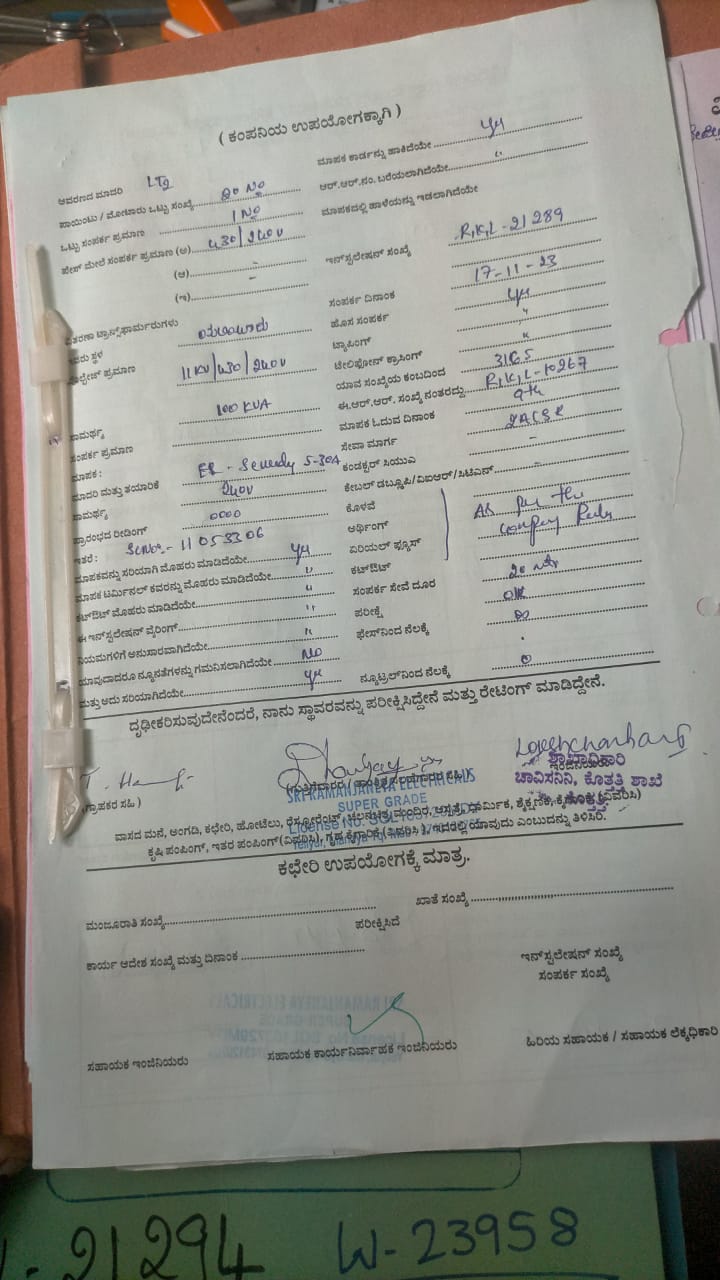 ( ಕಂಪನಿಯ ಉಪಯೋಗಕ್ಕಾಗಿ )
ಆವರಣದ ಮಾದರಿ LT2
ಪಾಯಿಂಟು / ಮೋಟಾರು ಒಟ್ಟು ಸಂಖ್ಯೆ 20 No
ಒಟ್ಟು ಸಂಪರ್ಕ ಪ್ರಮಾಣ 1 No
ಫೇಸ್ ಮೇಲೆ ಸಂಪರ್ಕ ಪ್ರಮಾಣ (ಅ) 430/240V
(ಆ) -
(ಇ) -
ವಿತರಣಾ ಟ್ರಾನ್ಸ್‌ಫಾರ್ಮರುಗಳು
ಸ್ಥಳ
ಪ್ರಮಾಣ 11KV/430/240V
100 KVA
ಸಾಮರ್ಥ್ಯ
ಸಂಪರ್ಕ ಪ್ರಮಾಣ
ಮಾಪಕ :
ಮಾದರಿ ಮತ್ತು ತಯಾರಿಕೆ 5-30A
ಸಾಮರ್ಥ್ಯ 240V
ಪ್ರಾರಂಭದ ರೀಡಿಂಗ್ 0000
ಇತರೆ : 11053306
ಮಾಪಕವನ್ನು ಸರಿಯಾಗಿ ಮೊಹರು ಮಾಡಿದೆಯೇ Yes
ಮಾಪಕ ಟರ್ಮಿನಲ್ ಕವರನ್ನು ಮೊಹರು ಮಾಡಿದೆಯೇ "
ಕಟ್‌ಔಟ್ ಮೊಹರು ಮಾಡಿದೆಯೇ "
ಈ ಇನ್‌ಸ್ಟಲೇಷನ್ ವೈರಿಂಗ್ "
ನಿಯಮಗಳಿಗೆ ಅನುಸಾರವಾಗಿದೆಯೇ "
ಯಾವುದಾದರೂ ನ್ಯೂನತೆಗಳನ್ನು ಗಮನಿಸಲಾಗಿದೆಯೇ No
ಮತ್ತು ಅದು ಸರಿಯಾಗಿದೆಯೇ Yes
ಮಾಪಕ ಕಾರ್ಡನ್ನು ಹಾಕಿದೆಯೇ Yes
ಆರ್.ಆರ್.ನಂ. ಬರೆಯಲಾಗಿದೆಯೇ "
ಮಾಪಕದಲ್ಲಿ ಹಾಳೆಯನ್ನು ಇಡಲಾಗಿದೆಯೇ
ಇನ್‌ಸ್ಟಲೇಷನ್ ಸಂಖ್ಯೆ R,K,L-21289
ಸಂಪರ್ಕ ದಿನಾಂಕ 17-11-23
ಹೊಸ ಸಂಪರ್ಕ Yes
ಟ್ಯಾಪಿಂಗ್ "
ಟೆಲಿಫೋನ್ ಕ್ರಾಸಿಂಗ್ "
ಯಾವ ಸಂಖ್ಯೆಯ ಕಂಬದಿಂದ
ಈ.ಆರ್.ಆರ್. ಸಂಖ್ಯೆ ನಂತರದ್ದು R,K,L-10267
ಮಾಪಕ ಓದುವ ದಿನಾಂಕ 9th
ಸೇವಾ ಮಾರ್ಗ
ಕಂಡಕ್ಟರ್ ಸಿಯುಎ -
ಕೇಬಲ್ ಡಬ್ಲ್ಯೂಪಿ/ವಿಐಆರ್/ಸಿಟಿಎಸ್ -
ಕೊಳವೆ
ಅರ್ಥಿಂಗ್
ಏರಿಯಲ್ ಫ್ಯೂಸ್
ಕಟ್‌ಔಟ್
As per the
company Rules
ಸಂಪರ್ಕ ಸೇವೆ ದೂರ 20 mtr
ಪರೀಕ್ಷೆ OK
ಫೇಸ್‌ನಿಂದ ನೆಲಕ್ಕೆ
ನ್ಯೂಟ್ರಲ್‌ನಿಂದ ನೆಲಕ್ಕೆ
ದೃಢೀಕರಿಸುವುದೇನೆಂದರೆ, ನಾನು ಸ್ಥಾವರವನ್ನು ಪರೀಕ್ಷಿಸಿದ್ದೇನೆ ಮತ್ತು ರೇಟಿಂಗ್ ಮಾಡಿದ್ದೇನೆ.
(ಗ್ರಾಹಕರ ಸಹಿ)
SRI RAMANJANEYA ELECTRICALS
SUPER GRADE
ಶಾಖಾಧಿಕಾರಿ
ಚಾವಿಸನಿನಿ, ಕೊತ್ತತ್ತಿ ಶಾಖೆ
ಕೊತ್ತತ್ತಿ
ವಾಸದ ಮನೆ, ಅಂಗಡಿ, ಕಛೇರಿ, ಹೋಟೆಲು, ರೆಸ್ಟೋರೆಂಟ್, ಚಲನಚಿತ್ರ ಮಂದಿರ, ಆಸ್ಪತ್ರೆ, ಧಾರ್ಮಿಕ, ಶೈಕ್ಷಣಿಕ, ಕೈಗಾರಿಕೆ (ವಿವರಿಸಿ)
ಕೃಷಿ ಪಂಪಿಂಗ್, ಇತರ ಪಂಪಿಂಗ್ (ವಿವರಿಸಿ), ಗೃಹ ಕೈಗಾರಿಕೆ (ವಿವರಿಸಿ) ಇದರಲ್ಲಿ ಯಾವುದು ಎಂಬುದನ್ನು ತಿಳಿಸಿರಿ.
ಕಛೇರಿ ಉಪಯೋಗಕ್ಕೆ ಮಾತ್ರ.
ಮಂಜೂರಾತಿ ಸಂಖ್ಯೆ
ಖಾತೆ ಸಂಖ್ಯೆ
ಪರೀಕ್ಷಿಸಿದೆ
ಕಾರ್ಯ ಆದೇಶ ಸಂಖ್ಯೆ ಮತ್ತು ದಿನಾಂಕ
ಇನ್‌ಸ್ಟಲೇಷನ್ ಸಂಖ್ಯೆ
ಸಂಪರ್ಕ ಸಂಖ್ಯೆ
ಸಹಾಯಕ ಇಂಜಿನಿಯರು
ಸಹಾಯಕ ಕಾರ್ಯನಿರ್ವಾಹಕ ಇಂಜಿನಿಯರು
ಹಿರಿಯ ಸಹಾಯಕ / ಸಹಾಯಕ ಲೆಕ್ಕಧಿಕಾರಿ
21294 W-23958